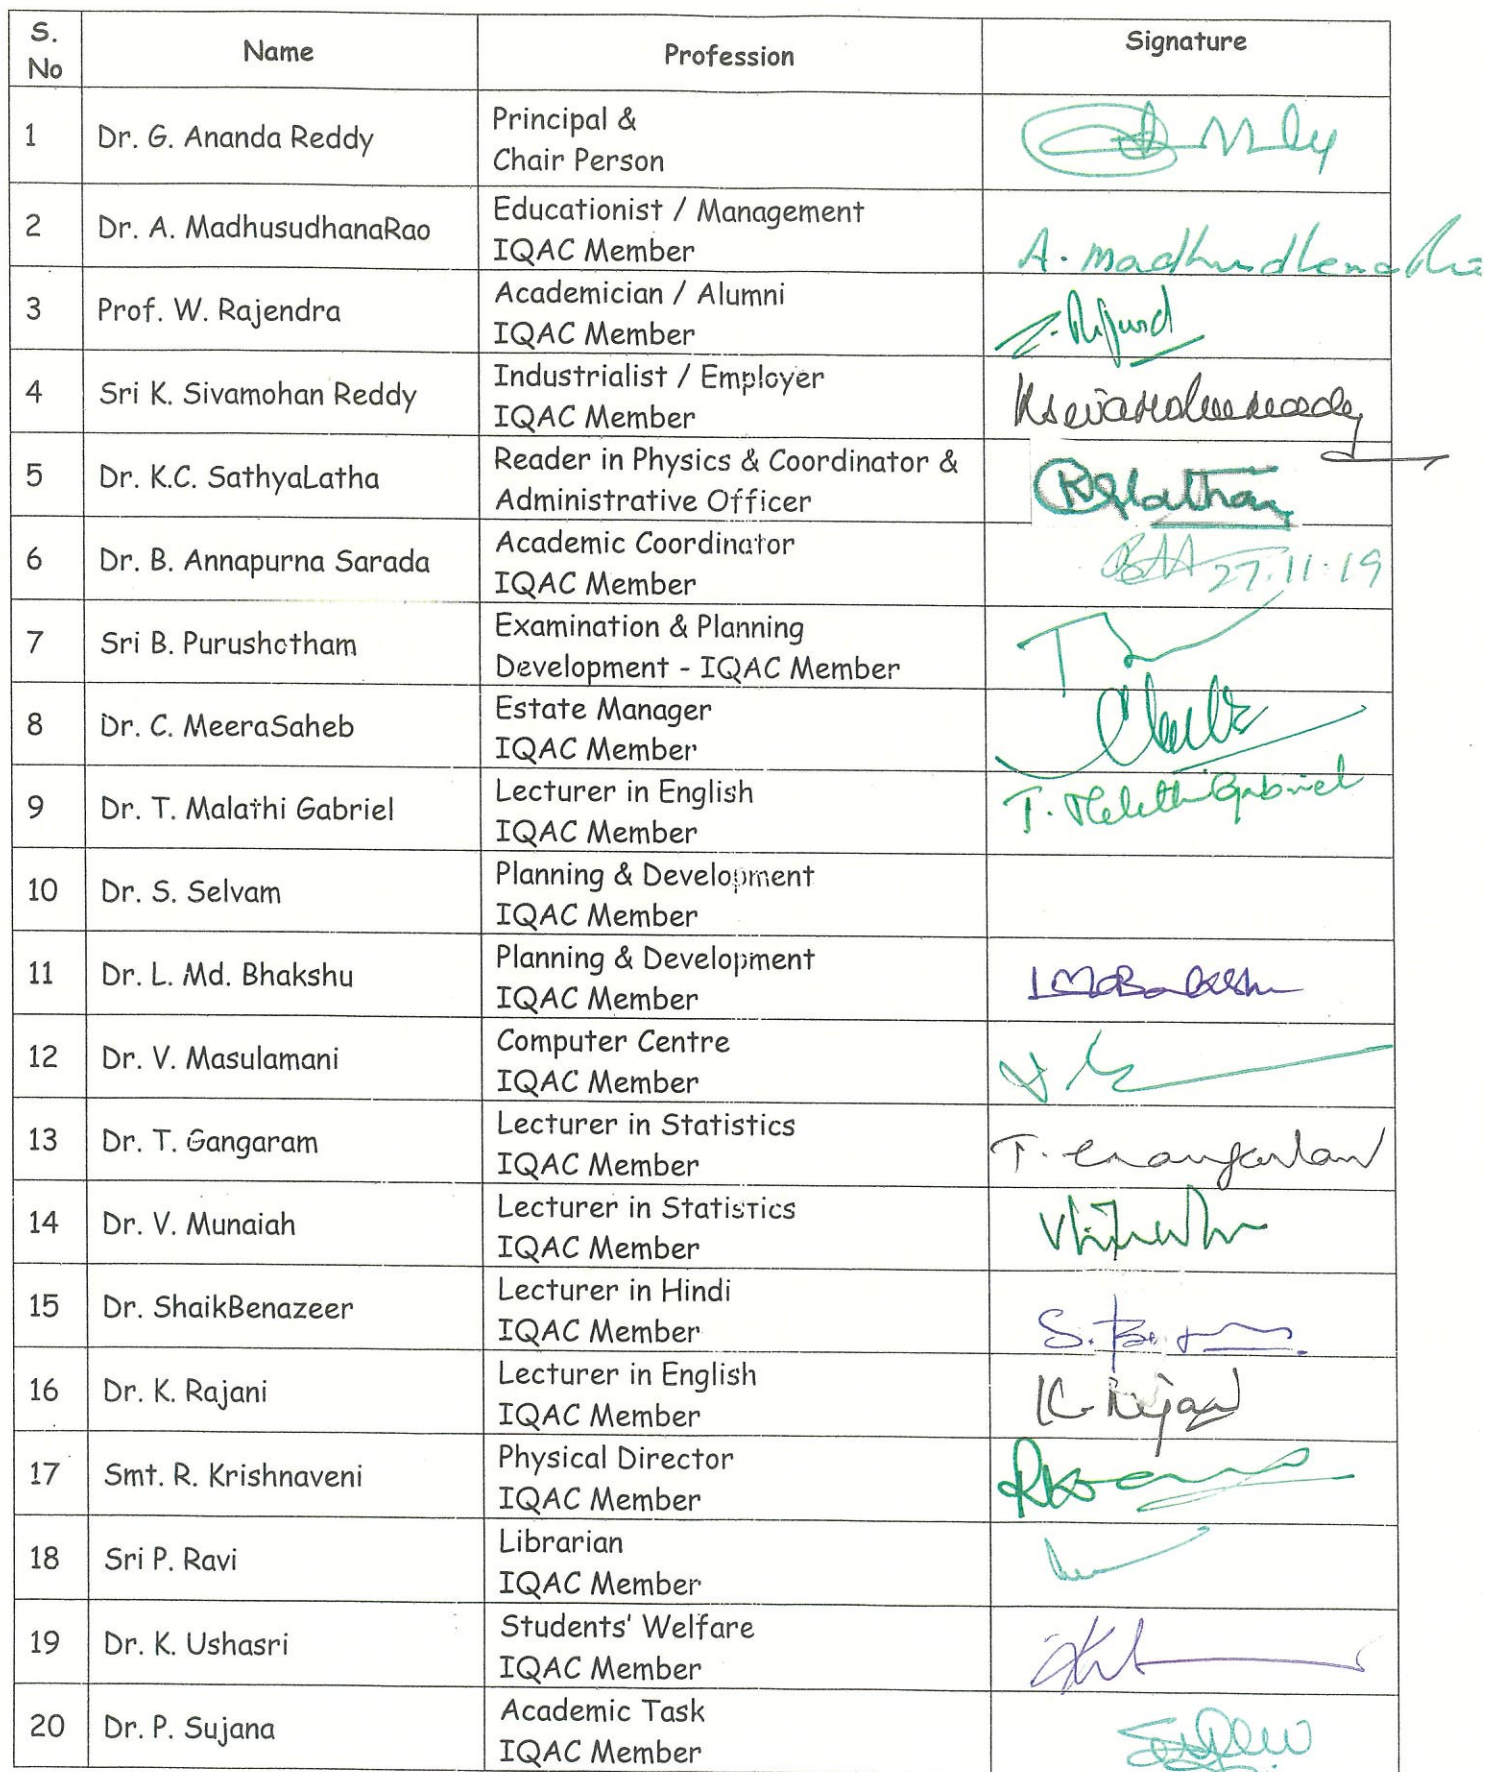 S.
No
Name
Profession
Signature
1
Dr. G. Ananda Reddy
Principal &
Chair Person
2
Dr. A. MadhusudhanaRao
Educationist / Management
IQAC Member
3
Prof. W. Rajendra
Academician / Alumni
IQAC Member
4
Sri K. Sivamohan Reddy
Industrialist / Employer
IQAC Member
5
Dr. K.C. SathyaLatha
Reader in Physics & Coordinator &
Administrative Officer
6
Dr. B. Annapurna Sarada
Academic Coordinator
IQAC Member
27.11.19
7
Sri B. Purushotham
Examination & Planning
Development - IQAC Member
8
Dr. C. MeeraSaheb
Estate Manager
IQAC Member
9
Dr. T. Malathi Gabriel
Lecturer in English
IQAC Member
T. Malathi Gabriel
10
Dr. S. Selvam
Planning & Development
IQAC Member
11
Dr. L. Md. Bhakshu
Planning & Development
IQAC Member
12
Dr. V. Masulamani
Computer Centre
IQAC Member
13
Dr. T. Gangaram
Lecturer in Statistics
IQAC Member
14
Dr. V. Munaiah
Lecturer in Statistics
IQAC Member
15
Dr. ShaikBenazeer
Lecturer in Hindi
IQAC Member
16
Dr. K. Rajani
Lecturer in English
IQAC Member
17
Smt. R. Krishnaveni
Physical Director
IQAC Member
18
Sri P. Ravi
Librarian
IQAC Member
19
Dr. K. Ushasri
Students' Welfare
IQAC Member
20
Dr. P. Sujana
Academic Task
IQAC Member